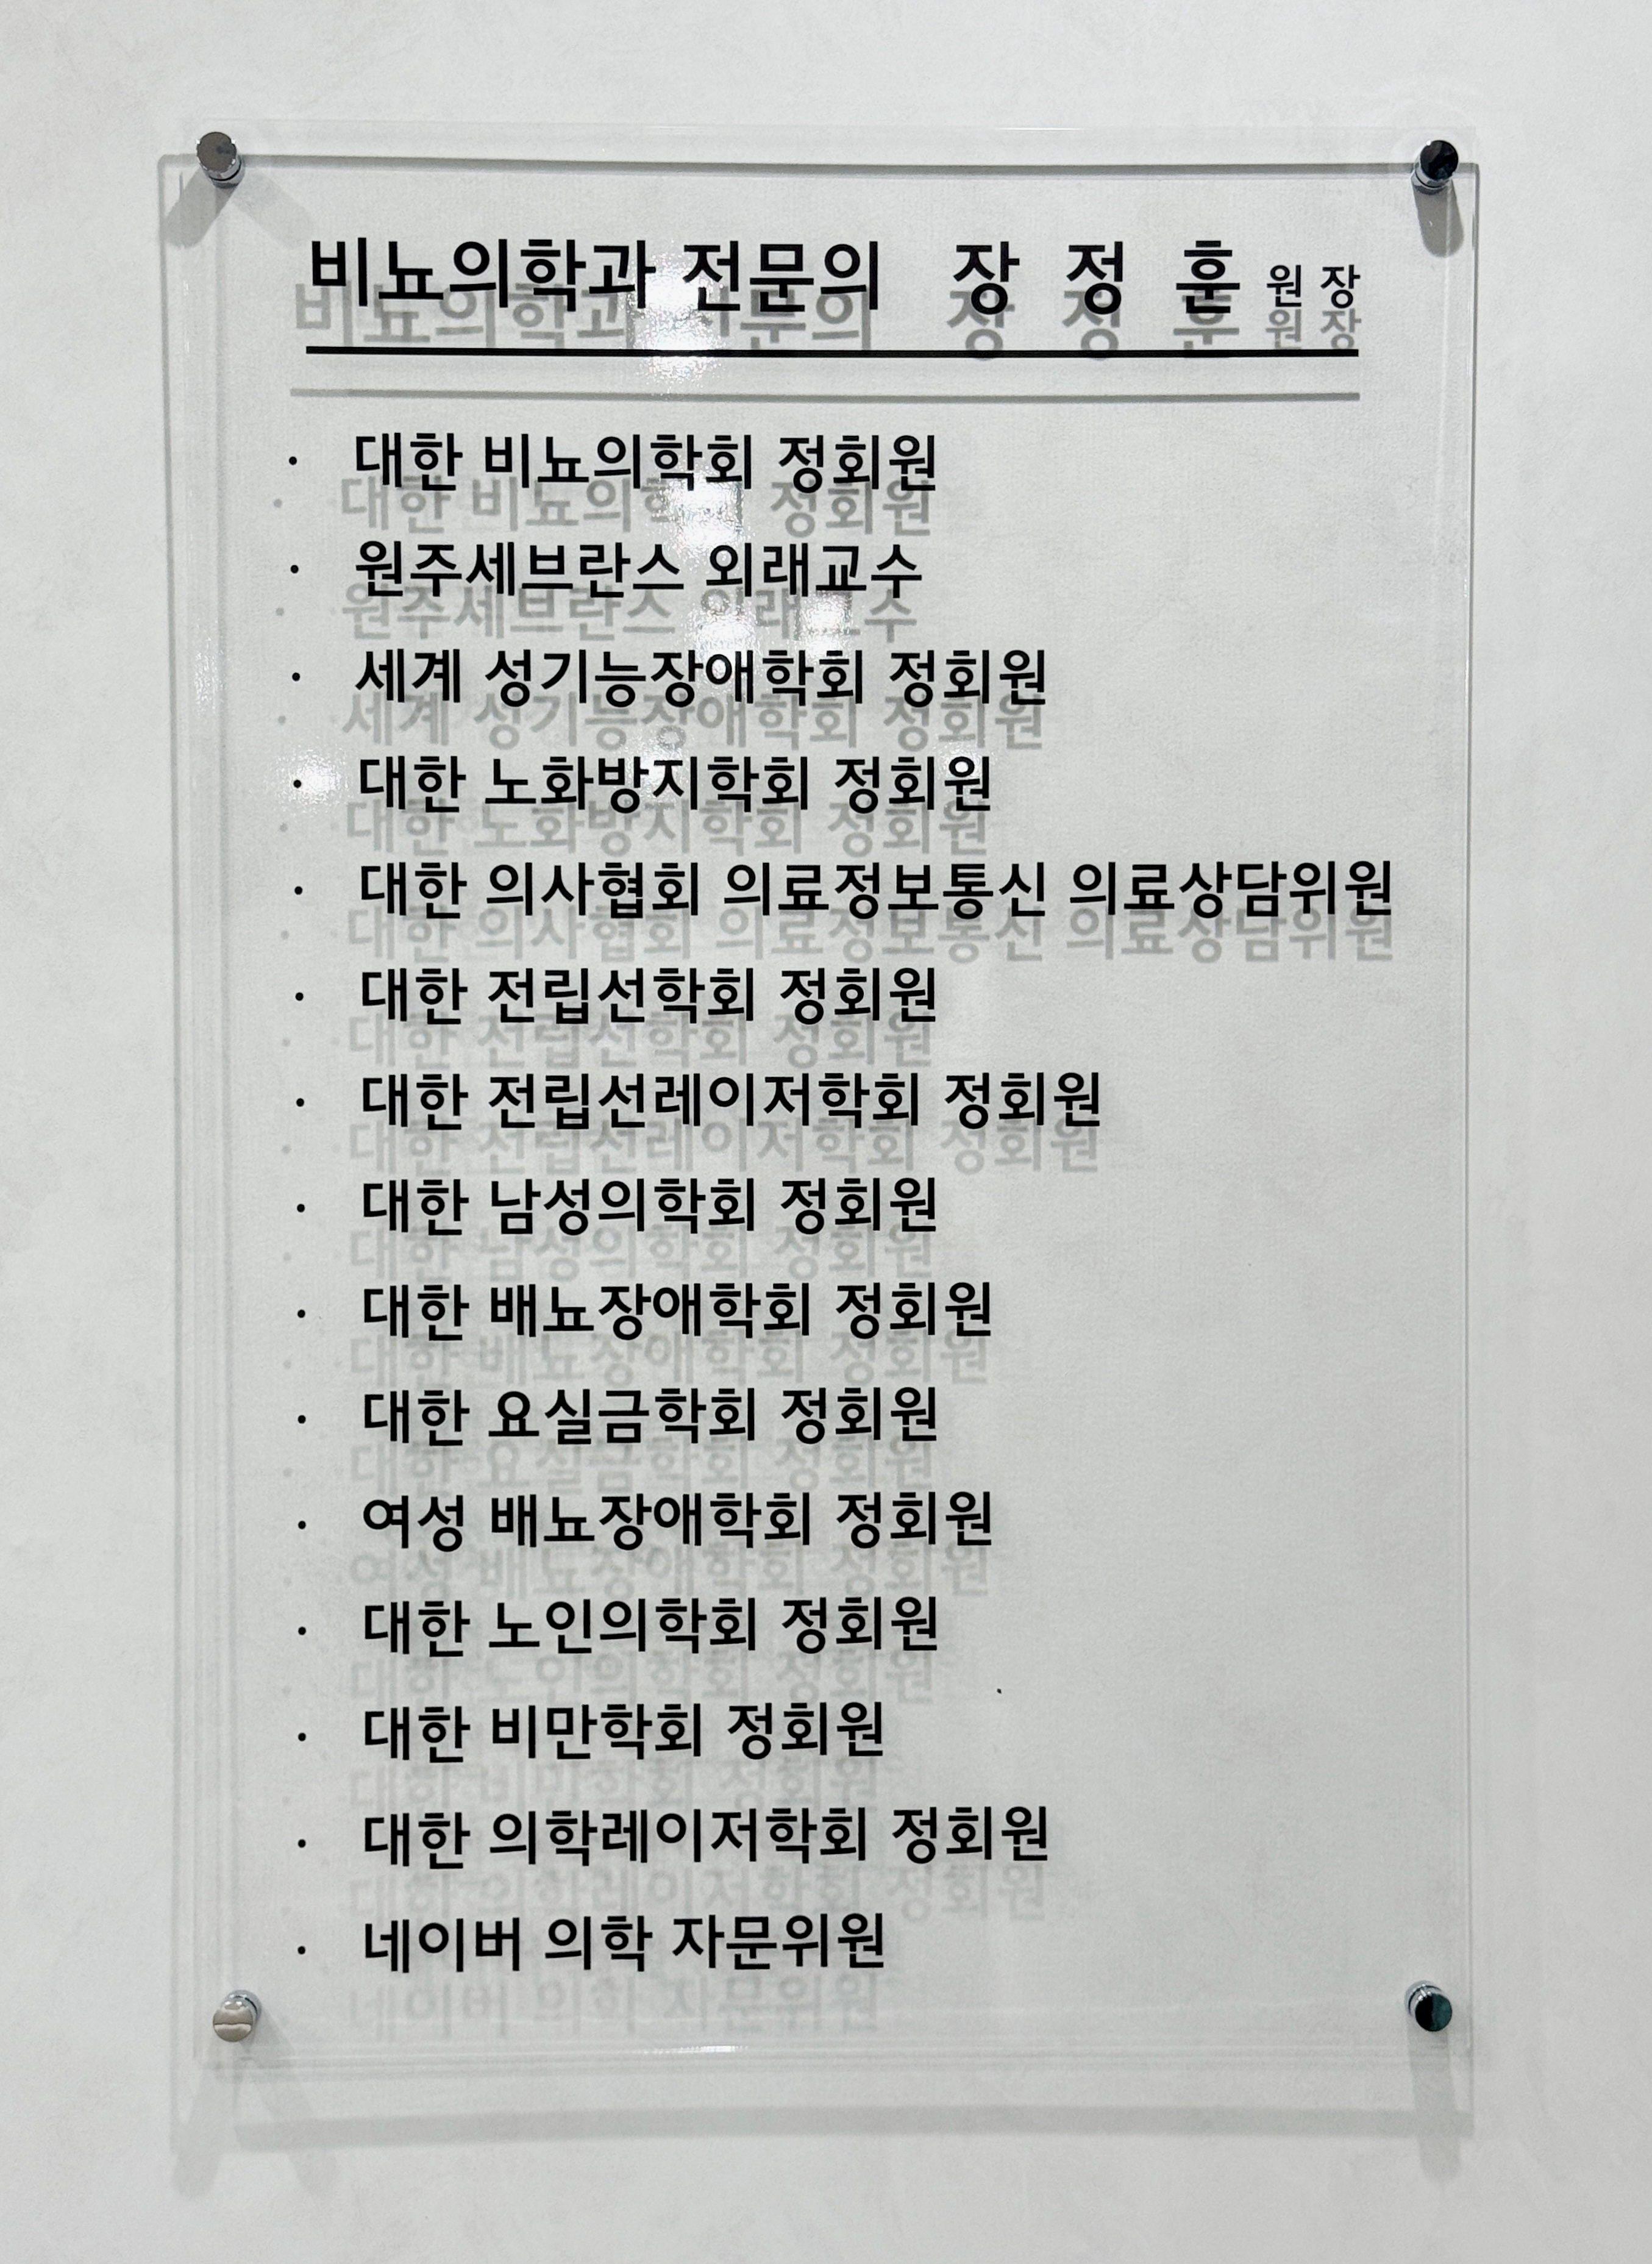 비뇨의학과 전문의 장 정 훈 원 장
· 대한 비뇨의학회 정회원
· 원주세브란스 외래교수
· 세계 성기능장애학회 정회원
· 대한 노화방지학회 정회원
· 대한 의사협회 의료정보통신 의료상담위원
· 대한 전립선학회 정회원
· 대한 전립선레이저학회 정회원
· 대한 남성의학회 정회원
· 대한 배뇨장애학회 정회원
· 대한 요실금학회 정회원
· 여성 배뇨장애학회 정회원
· 대한 노인의학회 정회원
· 대한 비만학회 정회원
· 대한 의학레이저학회 정회원
· 네이버 의학 자문위원